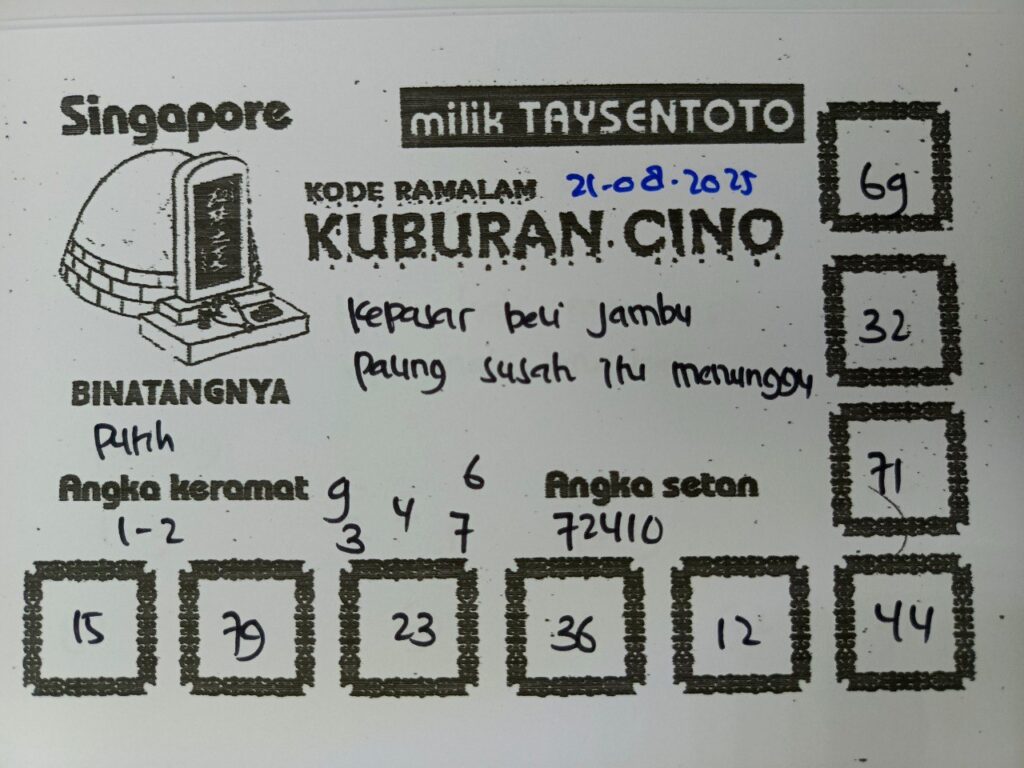 Singapore
milik TAYSENTOTO
KODE RAMALAM 21-08-2025
KUBURAN CINO
kepasar beli jambu
paling susah itu menunggu
BINATANGNYA
putih
Angka keramat
1-2
9 4 6
3 7
Angka setan
72410
69
32
71
15 79 23 36 12 44